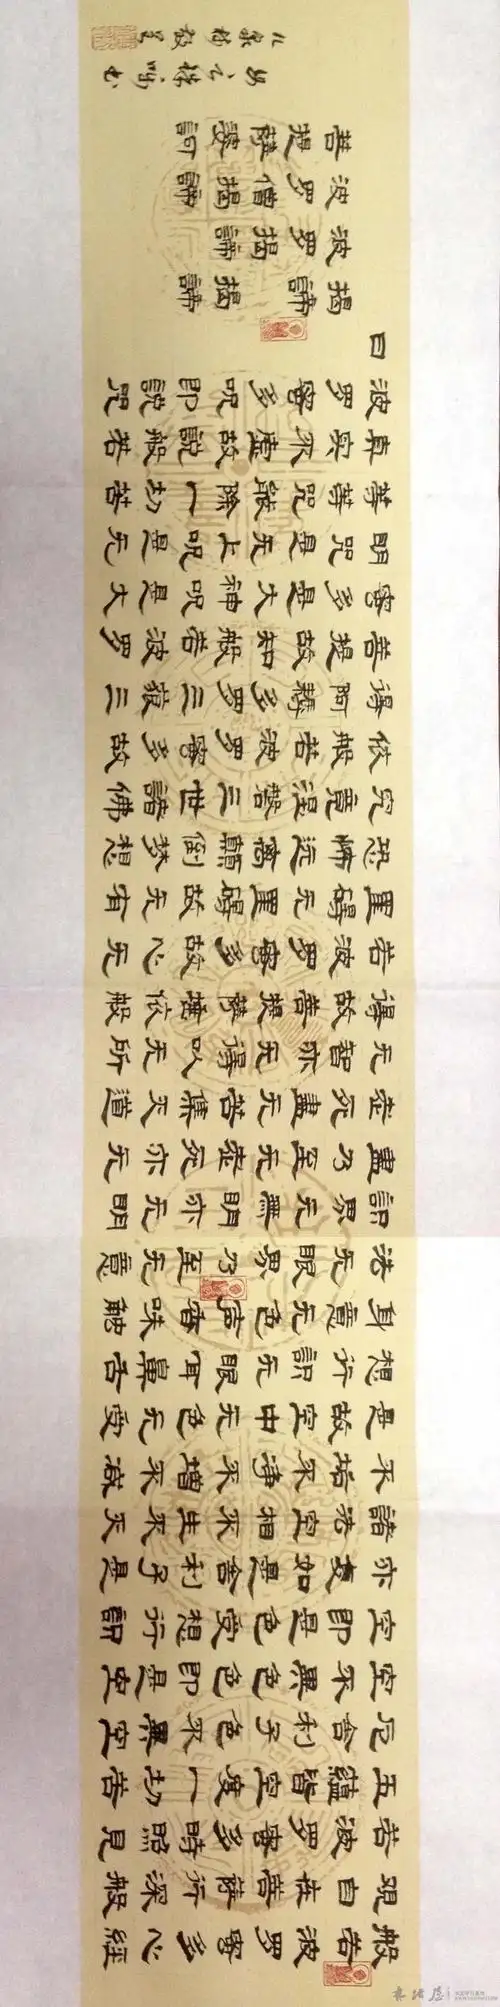 般若波罗蜜多心經
观自在菩萨行深般
若波罗蜜多時照見
五蘊皆空度一切苦
厄舍利子色不異空
空不異色色即是空
空即是色受想行識
亦复如是舍利子是
諸法空相不生不灭
不垢不净不增不减
是故空中无色无受
想行識无眼耳鼻舌
身意无色声香味觸
法无眼界乃至无意
識界无無明亦无明
盡乃至无老死亦无
老死盡无苦集灭道
无智亦无得以无所
得故菩提萨埵依般
若波罗蜜多故心无
罣碍无罣碍故无有
恐怖远离顛倒梦想
究竟涅槃三世諸佛
依般若波罗蜜多故
得阿耨多罗三藐三
菩提故知般若波罗
蜜多是大神咒是大
明咒是无上咒是无
等等咒能除一切苦
真实不虚故說般若
波罗蜜多咒即說咒
曰
揭諦揭諦
波罗揭諦
波罗僧揭諦
菩提薩婆訶